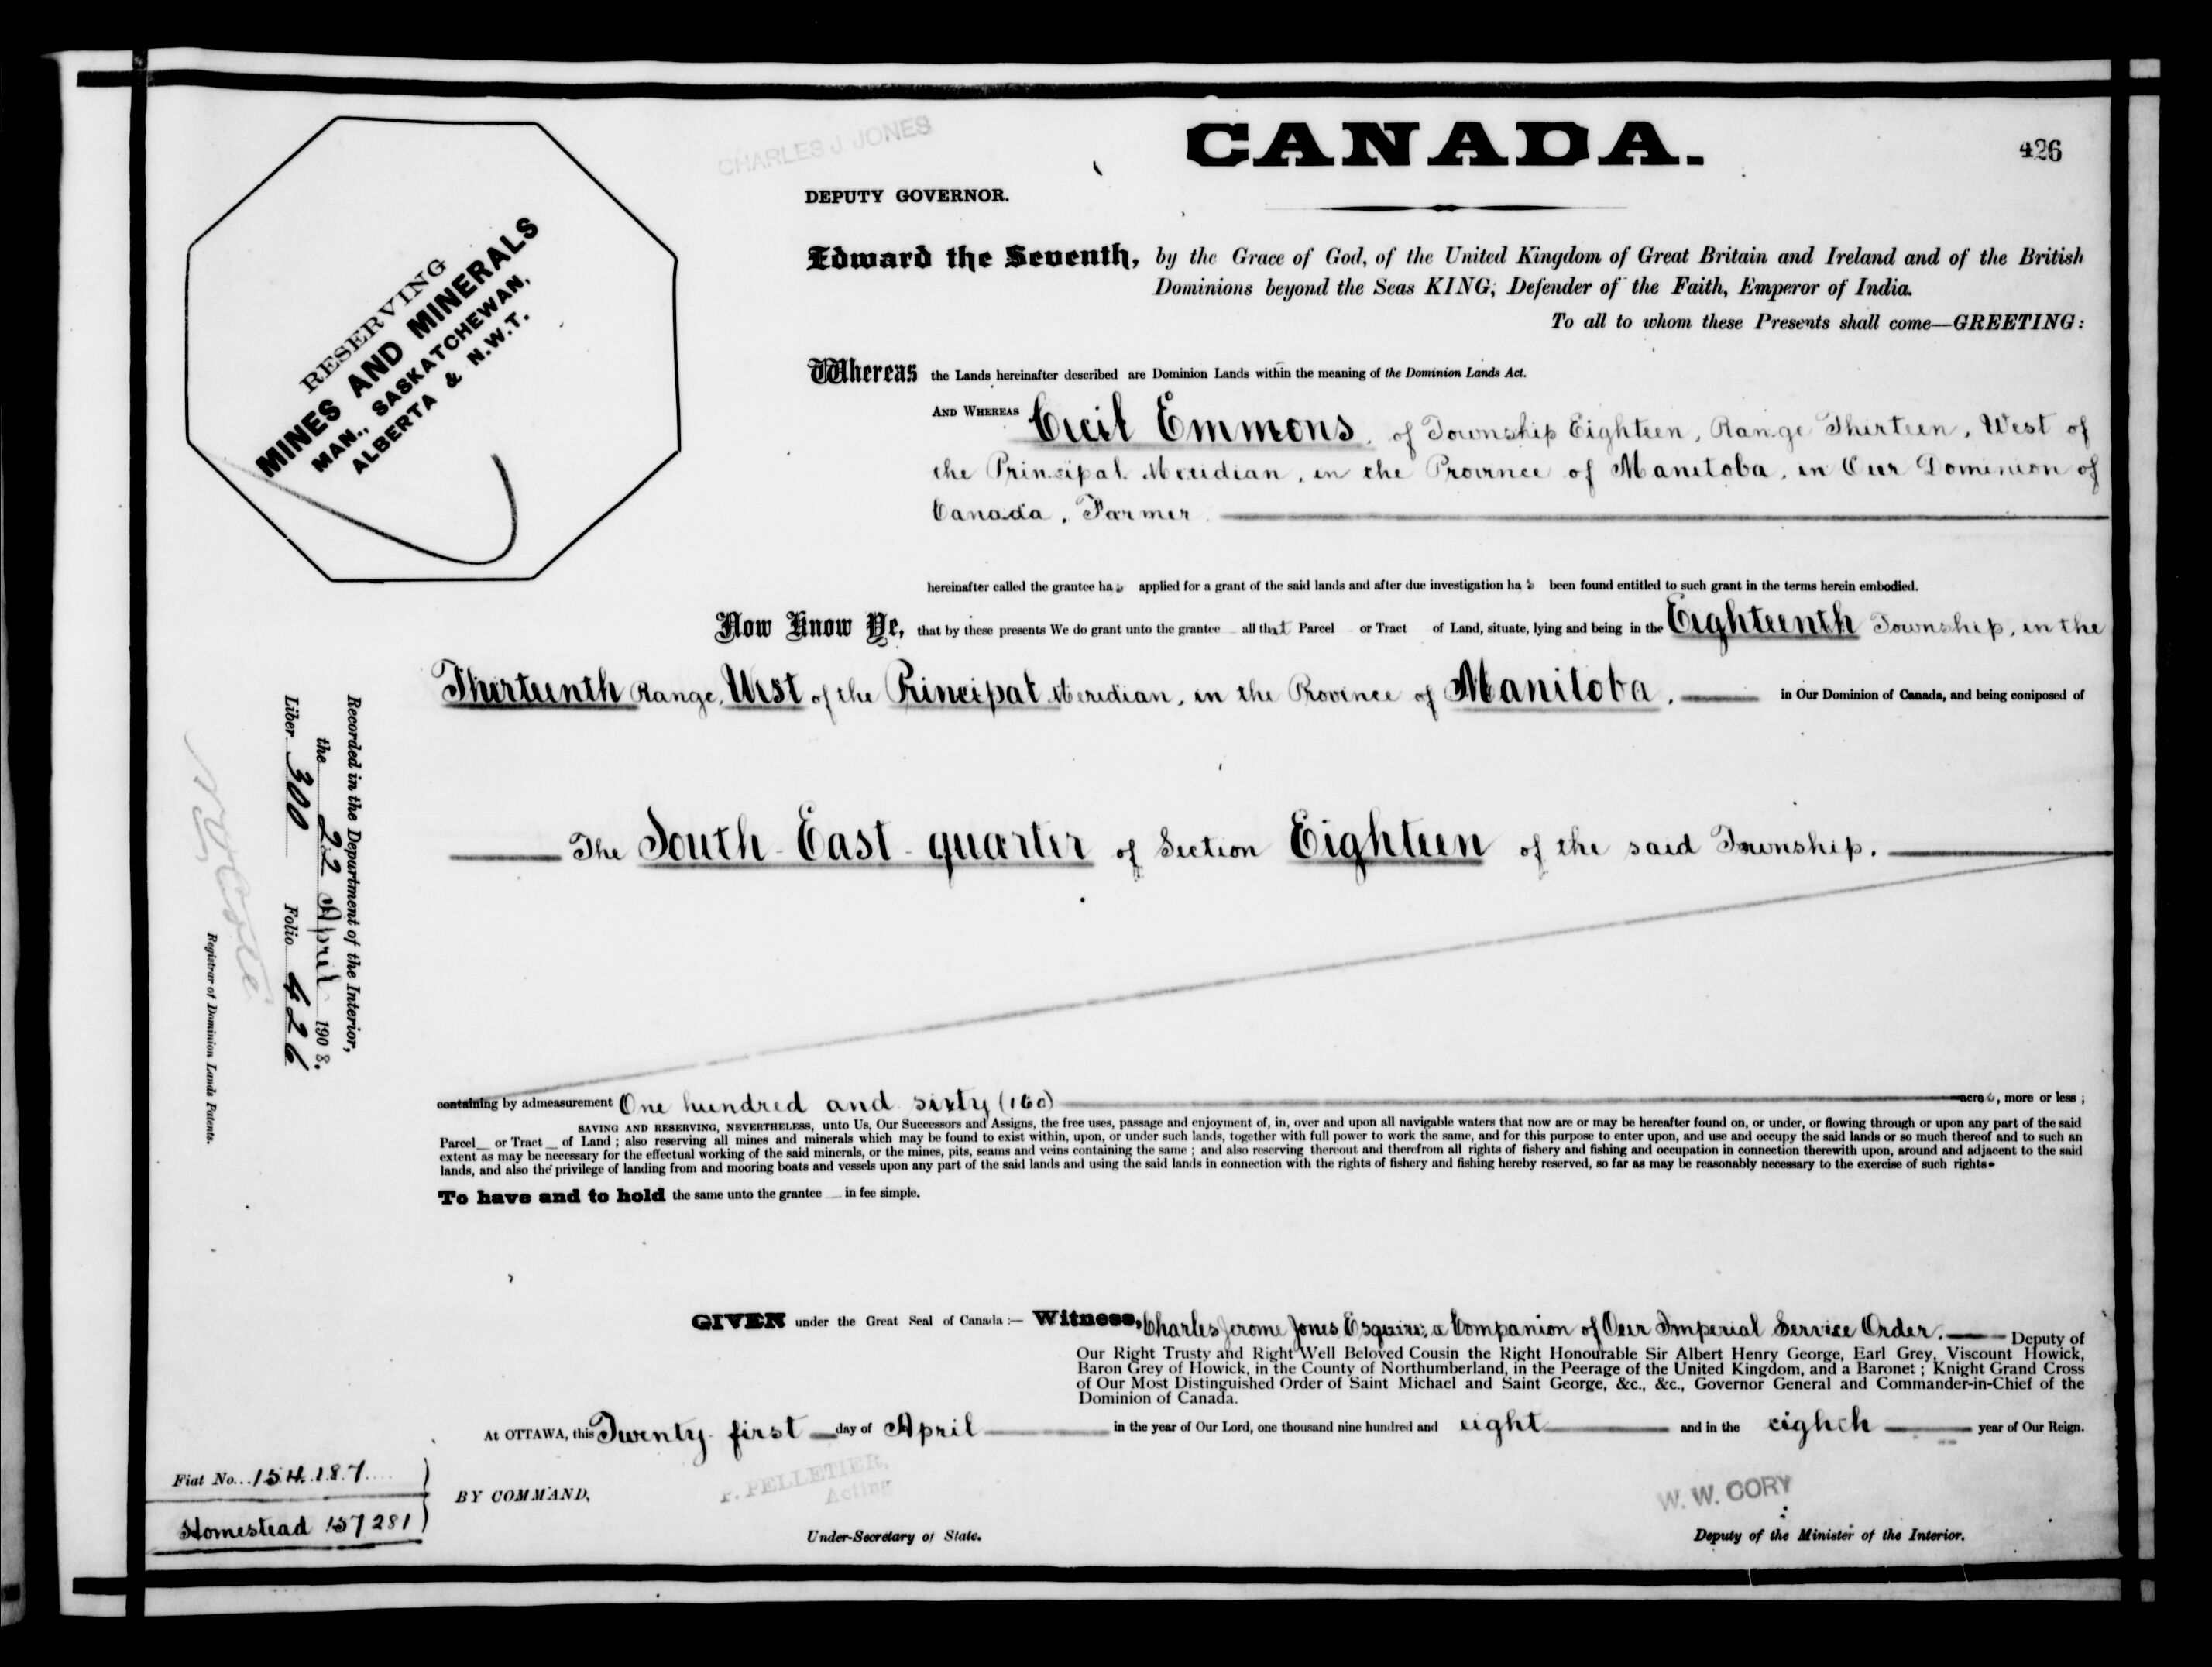 CHARLES J. JONES
CANADA.
426
DEPUTY GOVERNOR.
RESERVING
MINES AND MINERALS
MAN., SASKATCHEWAN,
ALBERTA & N.W.T.
Edward the Seventh, by the Grace of God, of the United Kingdom of Great Britain and Ireland and of the British
Dominions beyond the Seas KING, Defender of the Faith, Emperor of India.
To all to whom these Presents shall come—GREETING:
Whereas the Lands hereinafter described are Dominion Lands within the meaning of the Dominion Lands Act.
AND WHEREAS Cecil Emmons, of Township Eighteen, Range Thirteen, West of
the Principal Meridian, in the Province of Manitoba, in Our Dominion of
Canada, Farmer
hereinafter called the grantee has applied for a grant of the said lands and after due investigation has been found entitled to such grant in the terms herein embodied.
Now Know Ye, that by these presents We do grant unto the grantee all that Parcel or Tract of Land, situate, lying and being in the Eighteenth Township, in the
Thirteenth Range, West of the Principal Meridian, in the Province of Manitoba, in Our Dominion of Canada, and being composed of
The South East quarter of Section Eighteen of the said Township.
Recorded in the Department of the Interior,
the 22 April 1908.
Liber 300 Folio 426
Registrar of Dominion Lands Patents.
containing by admeasurement One hundred and sixty (160) acres, more or less;
SAVING AND RESERVING, NEVERTHELESS, unto Us, Our Successors and Assigns, the free uses, passage and enjoyment of, in, over and upon all navigable waters that now are or may be hereafter found on, or under, or flowing through or upon any part of the said
Parcel or Tract of Land; also reserving all mines and minerals which may be found to exist within, upon, or under such lands, together with full power to work the same, and for this purpose to enter upon, and use and occupy the said lands or so much thereof and to such an
extent as may be necessary for the effectual working of the said minerals, or the mines, pits, seams and veins containing the same; and also reserving thereout and therefrom all rights of fishery and fishing and occupation in connection therewith upon, around and adjacent to the said
lands, and also the privilege of landing from and mooring boats and vessels upon any part of the said lands and using the said lands in connection with the rights of fishery and fishing hereby reserved, so far as may be reasonably necessary to the exercise of such rights.
To have and to hold the same unto the grantee in fee simple.
GIVEN under the Great Seal of Canada:— Witness, Charles Jerome Jones Esquire, a Companion of Our Imperial Service Order. Deputy of
Our Right Trusty and Right Well Beloved Cousin the Right Honourable Sir Albert Henry George, Earl Grey, Viscount Howick,
Baron Grey of Howick, in the County of Northumberland, in the Peerage of the United Kingdom, and a Baronet; Knight Grand Cross
of Our Most Distinguished Order of Saint Michael and Saint George, &c., &c., Governor General and Commander-in-Chief of the
Dominion of Canada.
At OTTAWA, this Twenty first day of April in the year of Our Lord, one thousand nine hundred and eight and in the eighth year of Our Reign.
Fiat No. 154187
Homestead 157281
BY COMMAND,
P. PELLETIER,
Acting
Under-Secretary of State.
W. W. CORY
Deputy of the Minister of the Interior.